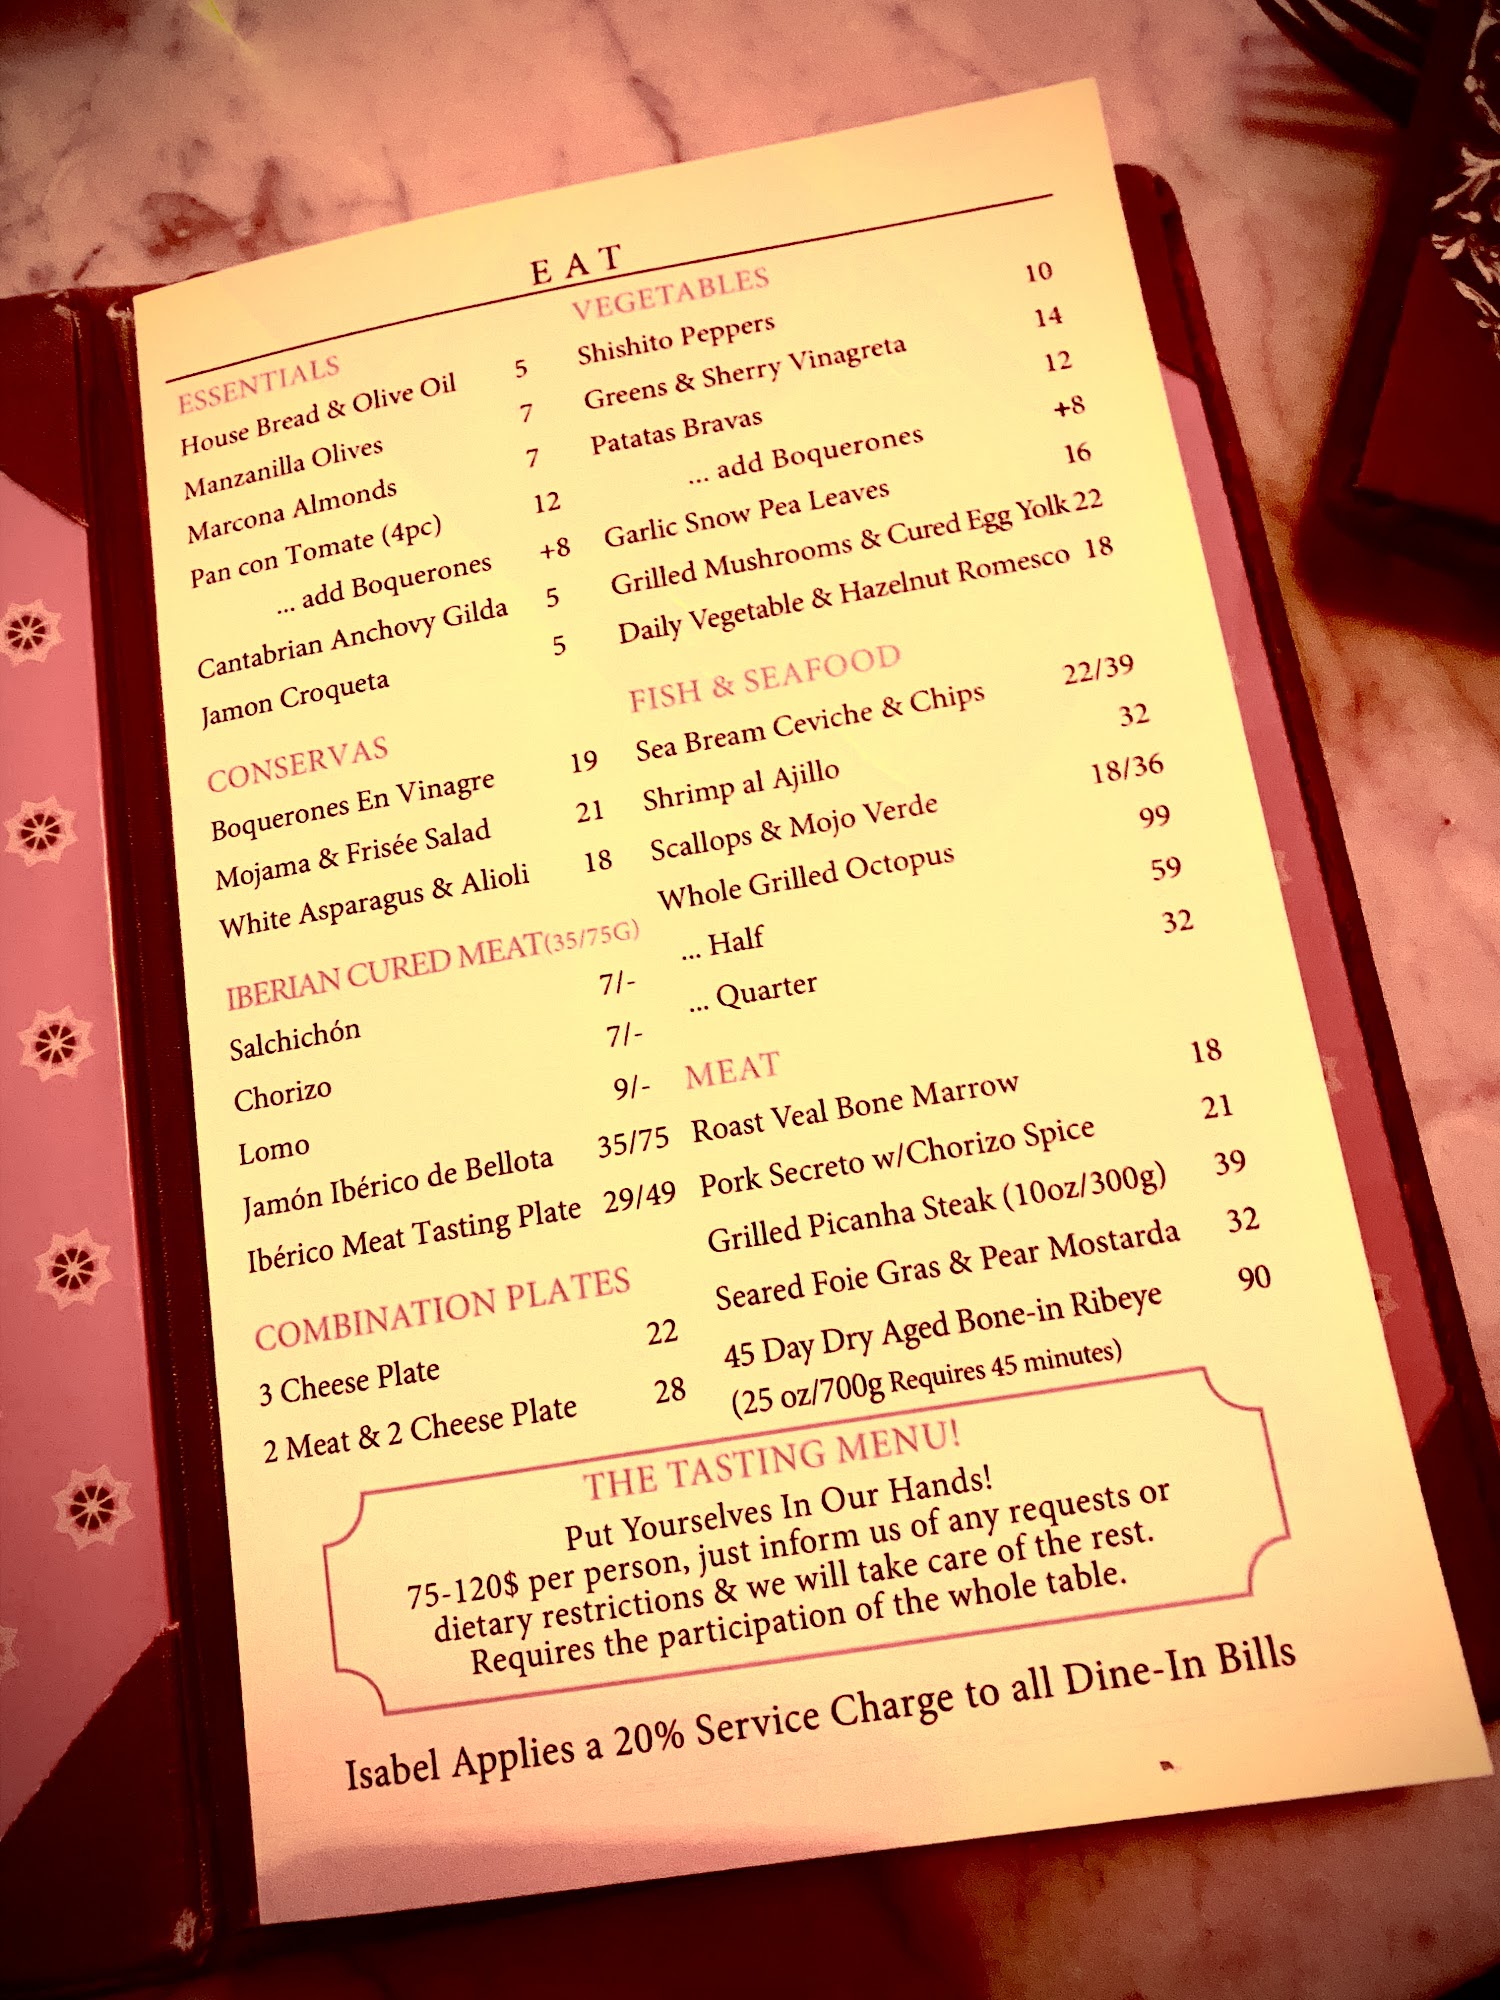 EAT
ESSENTIALS
House Bread & Olive Oil 5
Manzanilla Olives 7
Marcona Almonds 7
Pan con Tomate (4pc) 12
... add Boquerones +8
Cantabrian Anchovy Gilda 5
Jamon Croqueta 5
CONSERVAS
Boquerones En Vinagre 19
Mojama & Frisée Salad 21
White Asparagus & Alioli 18
IBERIAN CURED MEAT(35/75G)
Salchichón 7/-
Chorizo 7/-
Lomo 9/-
Jamón Ibérico de Bellota 35/75
Ibérico Meat Tasting Plate 29/49
COMBINATION PLATES
3 Cheese Plate 22
2 Meat & 2 Cheese Plate 28
VEGETABLES
Shishito Peppers 10
Greens & Sherry Vinagreta 14
Patatas Bravas 12
... add Boquerones +8
Garlic Snow Pea Leaves 16
Grilled Mushrooms & Cured Egg Yolk 22
Daily Vegetable & Hazelnut Romesco 18
FISH & SEAFOOD
Sea Bream Ceviche & Chips 22/39
Shrimp al Ajillo 32
Scallops & Mojo Verde 18/36
Whole Grilled Octopus 99
... Half 59
... Quarter 32
MEAT
Roast Veal Bone Marrow 18
Pork Secreto w/Chorizo Spice 21
Grilled Picanha Steak (10oz/300g) 39
Seared Foie Gras & Pear Mostarda 32
45 Day Dry Aged Bone-in Ribeye 90
(25 oz/700g Requires 45 minutes)
THE TASTING MENU!
Put Yourselves In Our Hands!
75-120$ per person, just inform us of any requests or
dietary restrictions & we will take care of the rest.
Requires the participation of the whole table.
Isabel Applies a 20% Service Charge to all Dine-In Bills